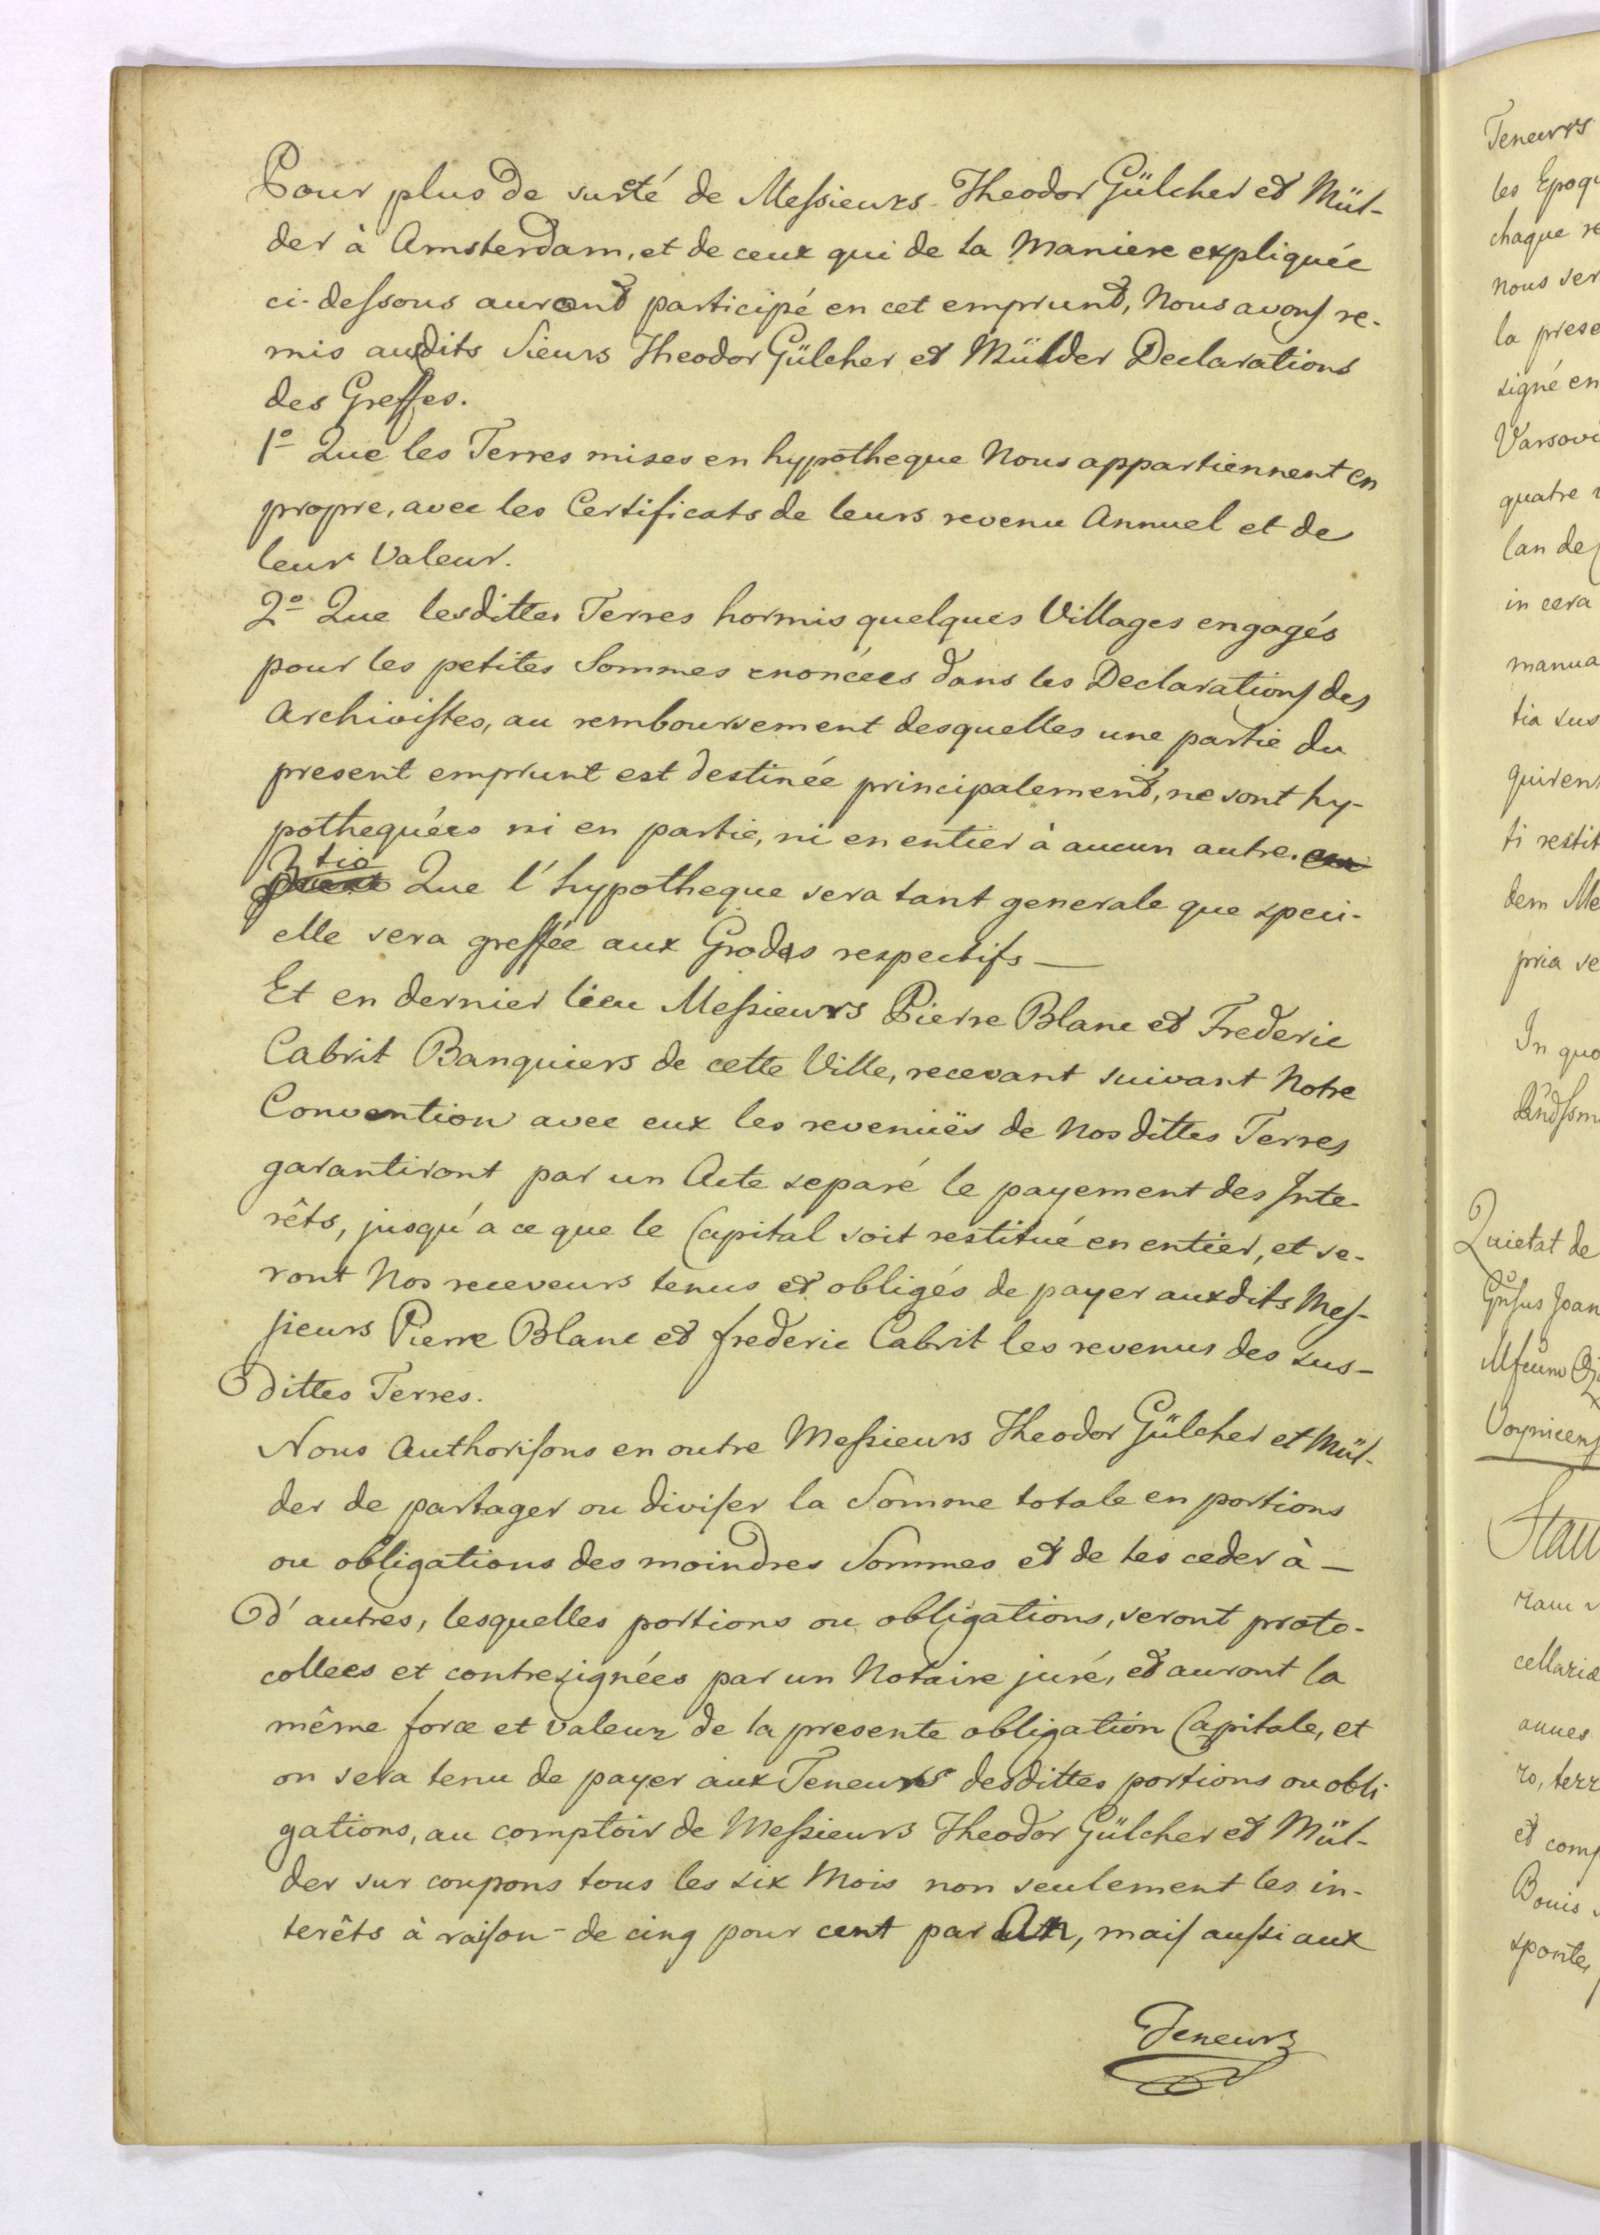 Pour plus de sureté de Meſsieurs Theodor Gülcher et Mül-
der à Amsterdam, et de ceux qui de la Maniere expliquée
ci-deſsous auront participé en cet emprunt, Nous avonſ re-
mis auxdits Sieurs Theodor Gülcher et Mülder Declarations
des Greffes.
1º Que les Terres mises en hypotheque Nous appartiennent en
propre, avec les Certificats de leurs revenu Annuel et de
leur Valeur.
2º Que lesdittes Terres hormis quelques Villages engagés
pour les petites Sommes enoncées dans les Declarationſ des
Archiviſtes, au remboursement desquelles une partie du
present emprunt est destinée principalement, ne sont hy-
pothequées ni en partie, ni en entier à aucun autre.
3tio Que l'hypotheque sera tant generale que speci-
elle sera greffée aux Grodes respectifs —
Et en dernier lieu Meſsieurs Pierre Blanc et Frederic
Cabrit Banquiers de cette Ville, recevant suivant Notre
Convention avec eux les revenuës de Nosdittes Terres
garantiront par un Acte separé le payement des Inte-
rêts, jusqu'a ce que le Capital soit restitué en entier, et se-
ront Nos receveurs tenus et obligés de payer auxdits Meſ-
ſieurs Pierre Blanc et frederic Cabrit les revenus des sus-
dittes Terres.
Nous Authoriſons en outre Meſsieurs Theodor Gülcher et Mül-
der de partager ou diviſer la Somme totale en portions
ou obligations des moindres Sommes et de les ceder à —
d'autres, lesquelles portions ou obligations, seront proto-
collees et contresignées par un Notaire juré, et auront la
même force et Valeur de la presente obligation Capitale, et
on sera tenu de payer aux Teneurs desdittes portions ou obli
gations, au comptoir de Meſsieurs Theodor Gülcher et Mül-
der sur coupons tous les six Mois non seulement les in-
terêts à raiſon - de cinq pour cent par An, maiſ auſsi aux
Teneurs
Teneurs
les Epoqu
chaque re
nous ser
la prese
signé en
Varsovi
quatre
lan de
in cera
manua
tia sus
quiren
ti restit
dem Me
pria se
In quo
Quietat de
Voynicenſ
Stan
cellariæ
annes
ro, terr
et comp
Bonis
sponte,